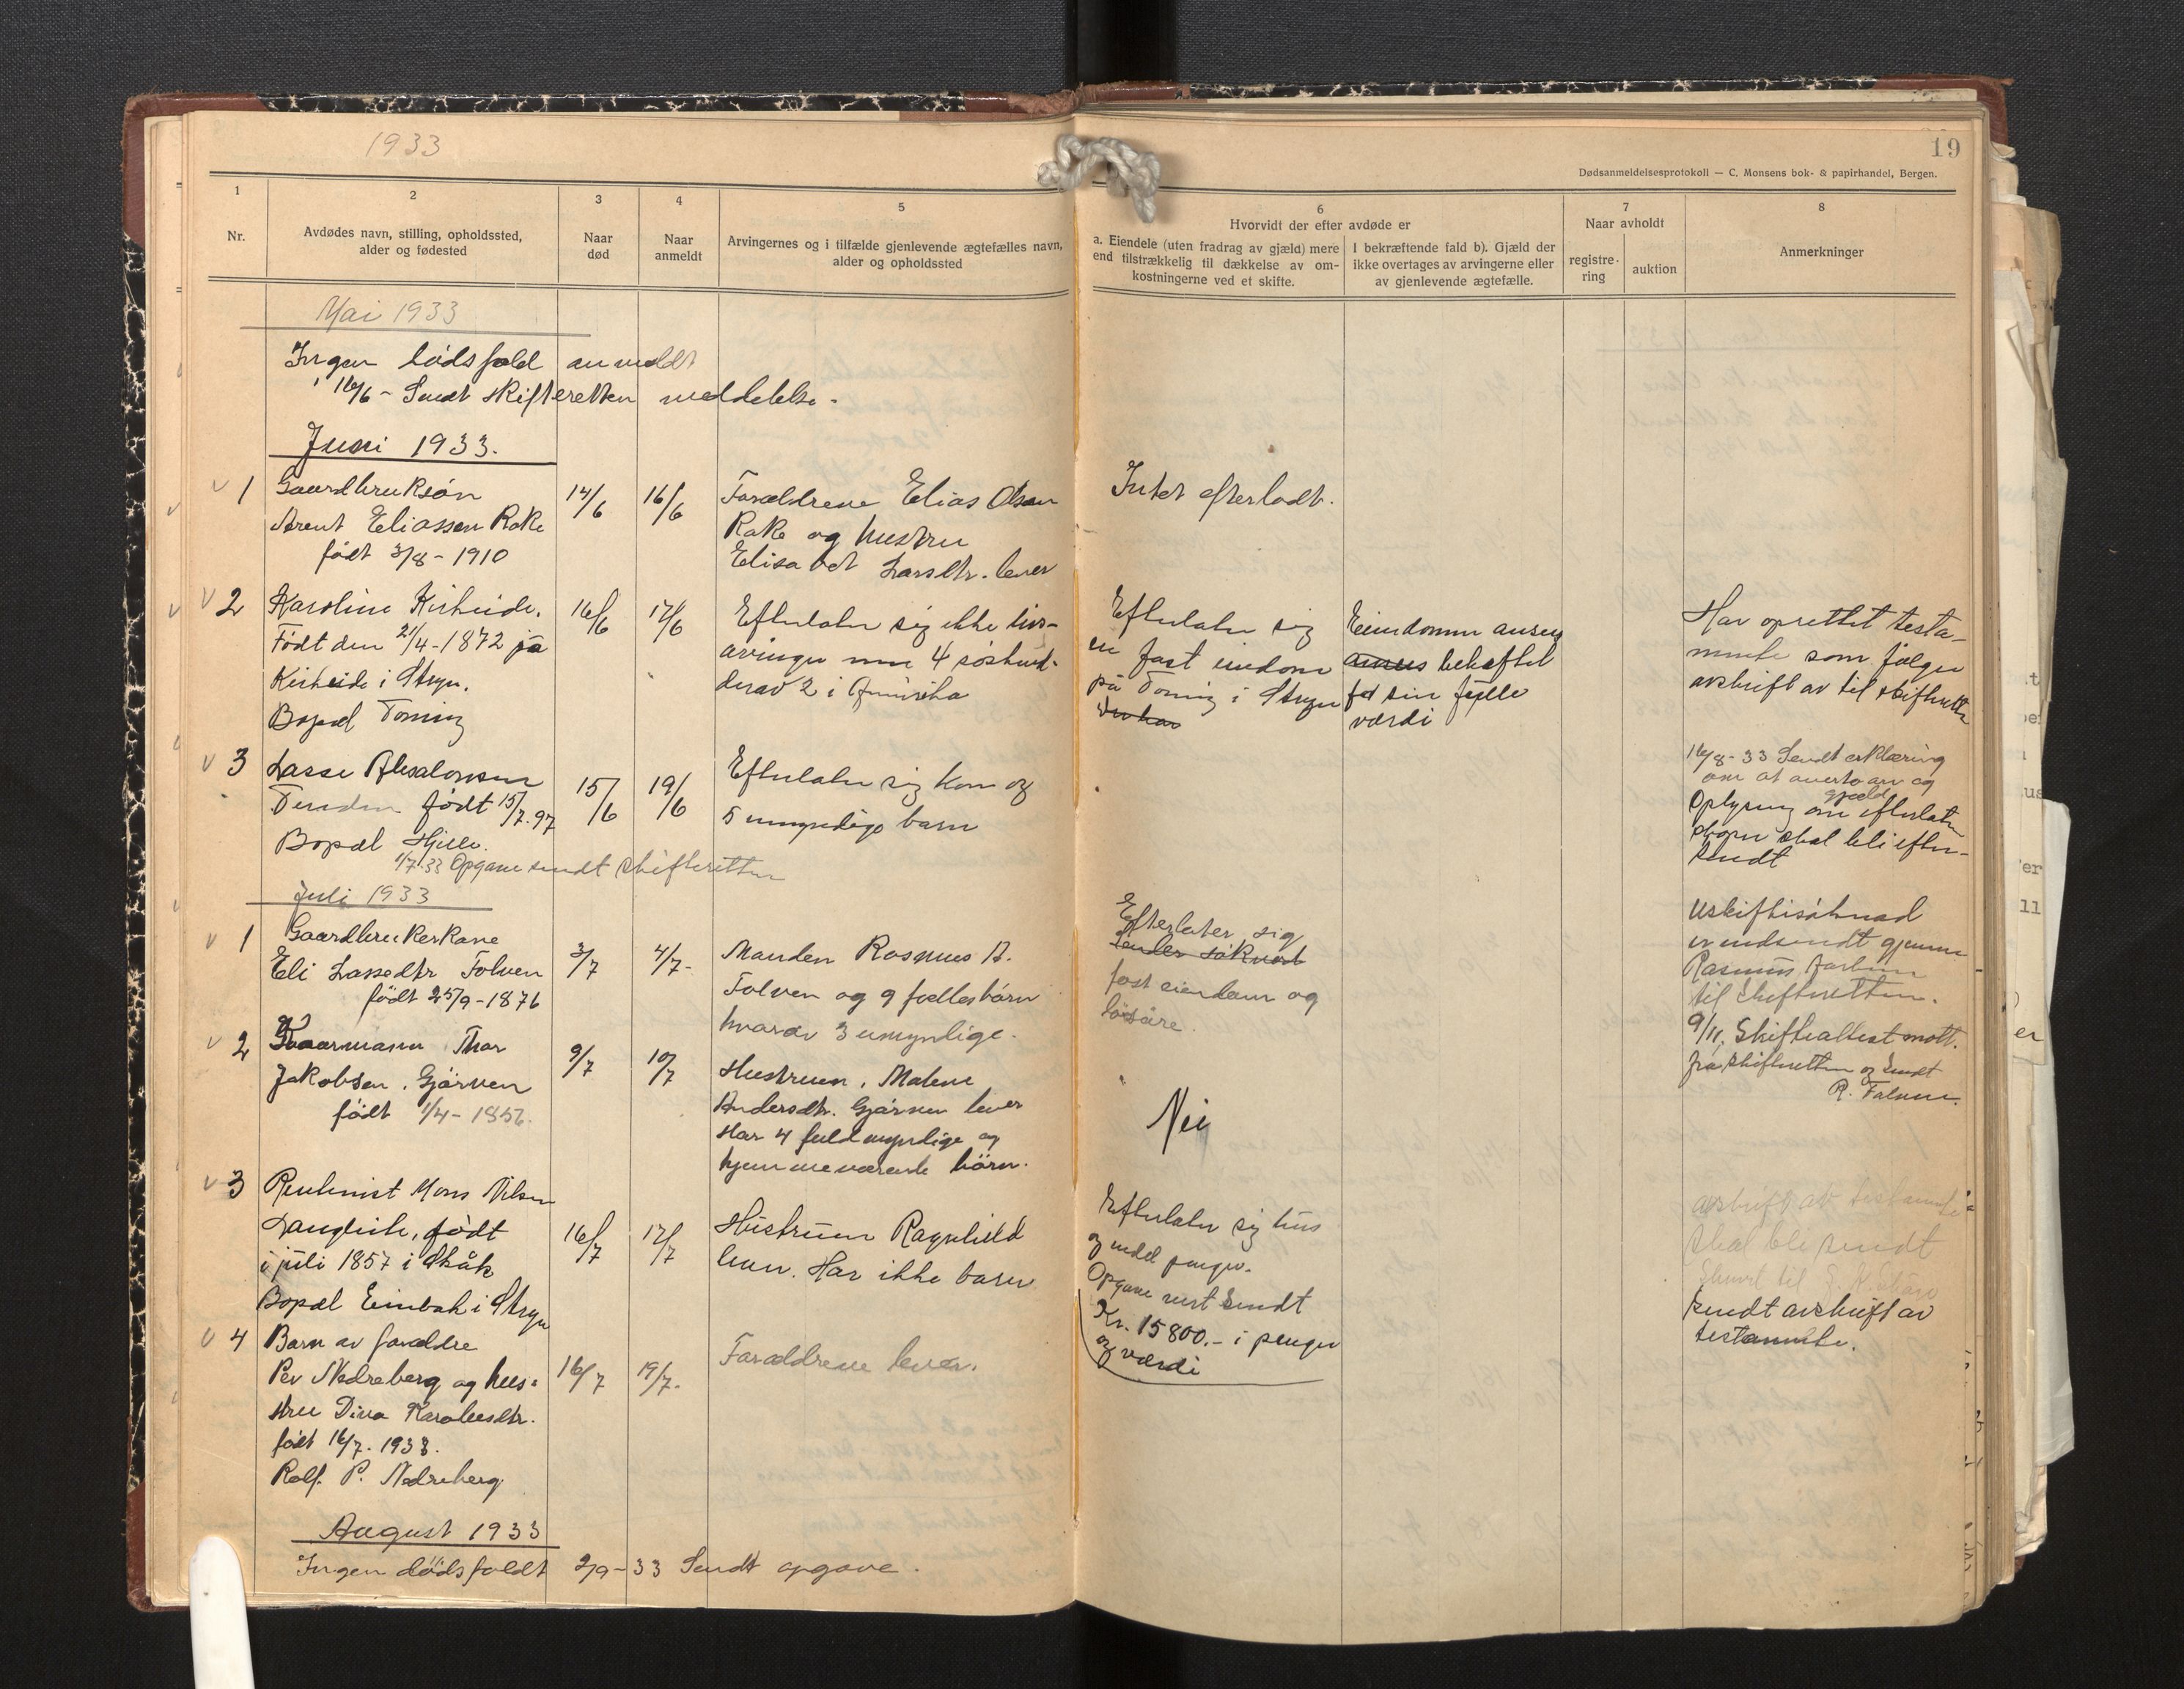 1933
19
Dødsanmeldelsesprotokoll — C. Monsens bok- & papirhandel, Bergen.
1
Nr.
2
Avdødes navn, stilling, opholdssted,
alder og fødested
3
Naar
død
4
Naar
anmeldt
5
Arvingernes og i tilfælde gjenlevende ægtefælles navn,
alder og opholdssted
6
Hvorvidt der efter avdøde er
a. Eiendele (uten fradrag av gjæld) mere
end tilstrækkelig til dækkelse av om-
kostningerne ved et skifte.
I bekræftende fald b). Gjæld der
ikke overtages av arvingerne eller
av gjenlevende ægtefælle.
7
Naar avholdt
registre-
ring
auktion
8
Anmerkninger
Mai 1933
Ingen dødsfald anmeldt
16/6 - Sendt skifteretten meddelelse.
Juni 1933.
1
Gaardbruksøn
Arent Eliassen Rake
født 3/8 - 1910
14/6
16/6
Forældrene Elias Olsen
Rake og hustru
Elisabet Larsdtr. lever
Intet efterladt.
2
Karoline Kirheide.
Født den 21/4-1872 på
Kirheide i Stryn.
Bopæl Toning
16/6
17/6
Efterlater sig ikke livs-
arvinger men 4 søskend-
derav 2 i Amerika
Efterlater sig
en fast eiendom
på Toning i Stryn
Eiendommen ansees
behæftet
for sin fulle
værdi
Har oprettet testa-
mente som følger
avskrift av til skifteretten
3
Lasse Absalonsen
født 15/7.97
Bopæl Hjelle.
15/6
19/6
Efterlater sig kone og
5 umyndige barn
16/8-33 Sendt erklæring
om at overta arv og
gjæld
Oplysning om efterlatte
skal bli efter-
sendt
1/7.33 Opgave sendt skifteretten
Juli 1933
1
Gaardbrukerkone
Eli Lassedtr Folven
født 25/9-1876
3/7
4/7-
Manden Rasmus A.
Folven og 9 fællesbørn
hvorav 3 umyndige.
Efterlater sig
fast eiendom og
løsøre.
er indsendt gjennem
Rasmus
til skifteretten.
9/11. Skifteattest mott.
fra skifteretten og sendt
R. Folven.
2
Thor
Jakobsen. Gjørven
født 1/4-1856.
9/7
10/7
Hustruen. Malene
Andersdtr. Gjørven lever
Har 4 fuldmyndige og
hjemmeværende børn.
Nei
3
Rentenist Mons Nilsen
født
i juli 1857 i Skåk
Bopæl i Stryn
16/7
17/7
Hustruen Ragnhild
lever. Har ikke barn
Efterlater sig hus
og endel penger.
Opgave sendt
Kr. 15800.- i penger
og værdi
avskrift av testamente
skal bli sendt
sendt avskrift av
testamente.
4
Barn av forældre
Per Nedreberg og hus-
tru Dina Karolusdtr.
født 16/7. 1933.
Rolf. P. Nedreberg
16/7
19/7.
Forældrene lever.
August 1933
Ingen dødsfald 2/9-33 Sendt opgave.